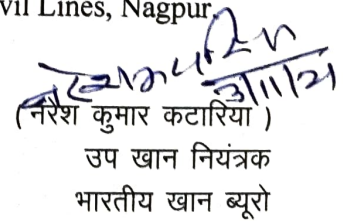 vil Lines, Nagpur
3/11/21
(नरेश कुमार कटारिया )
उप खान नियंत्रक
भारतीय खान ब्यूरो